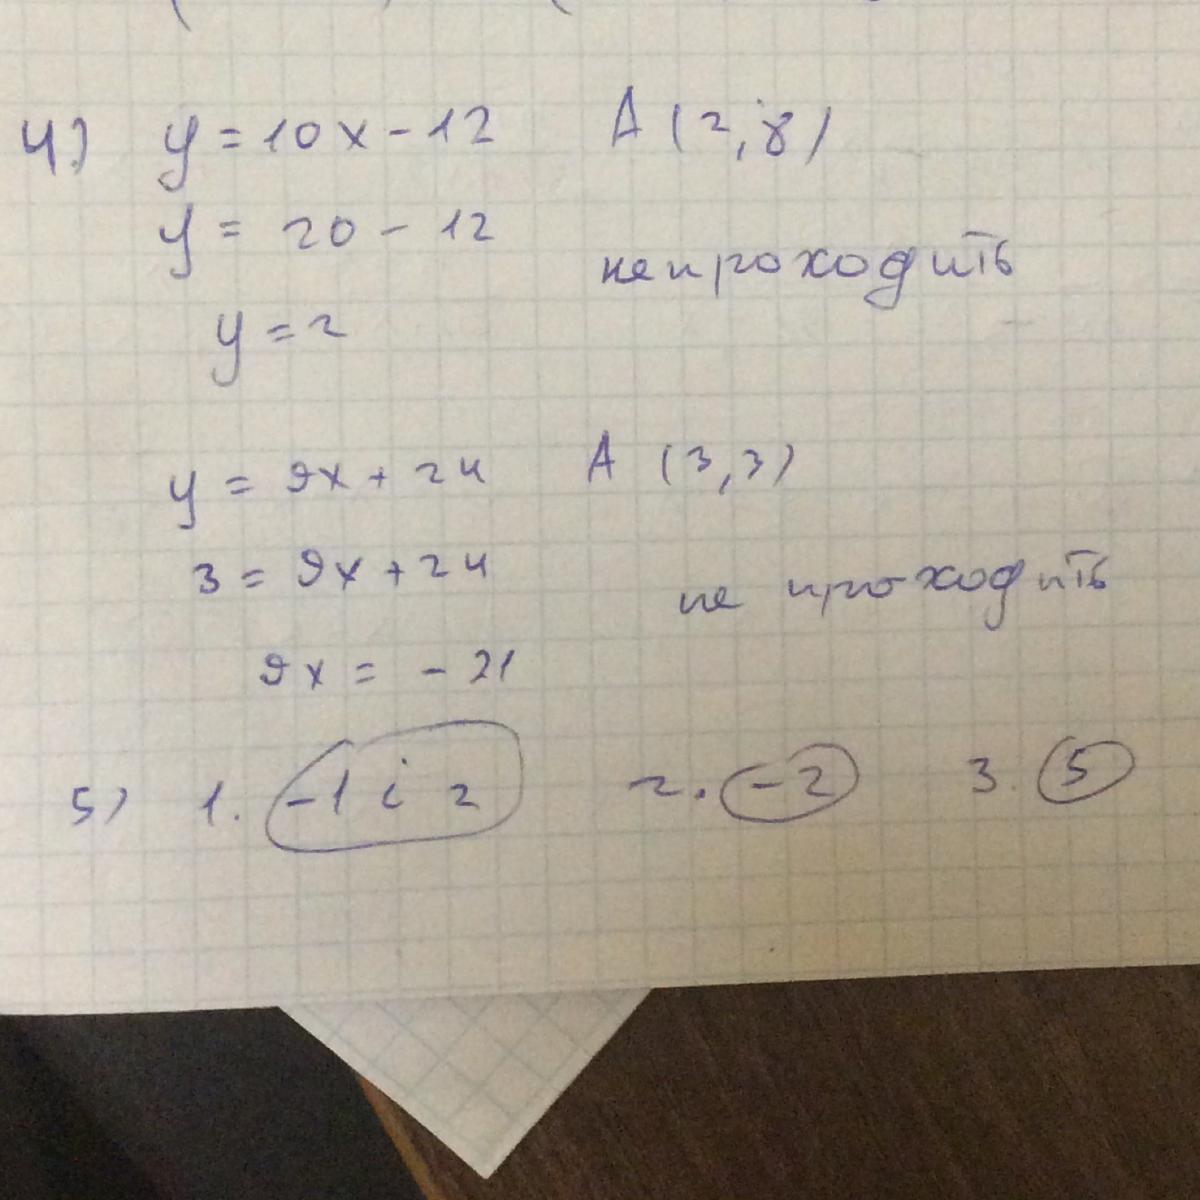 4) y = 10x - 12 A (2, 8)
y = 20 - 12
не проходить
y = 2
y = 9x + 24 A (3, 3)
3 = 9x + 24
не проходить
9x = - 21
5) 1. -1 i 2 2. -2 3. 5